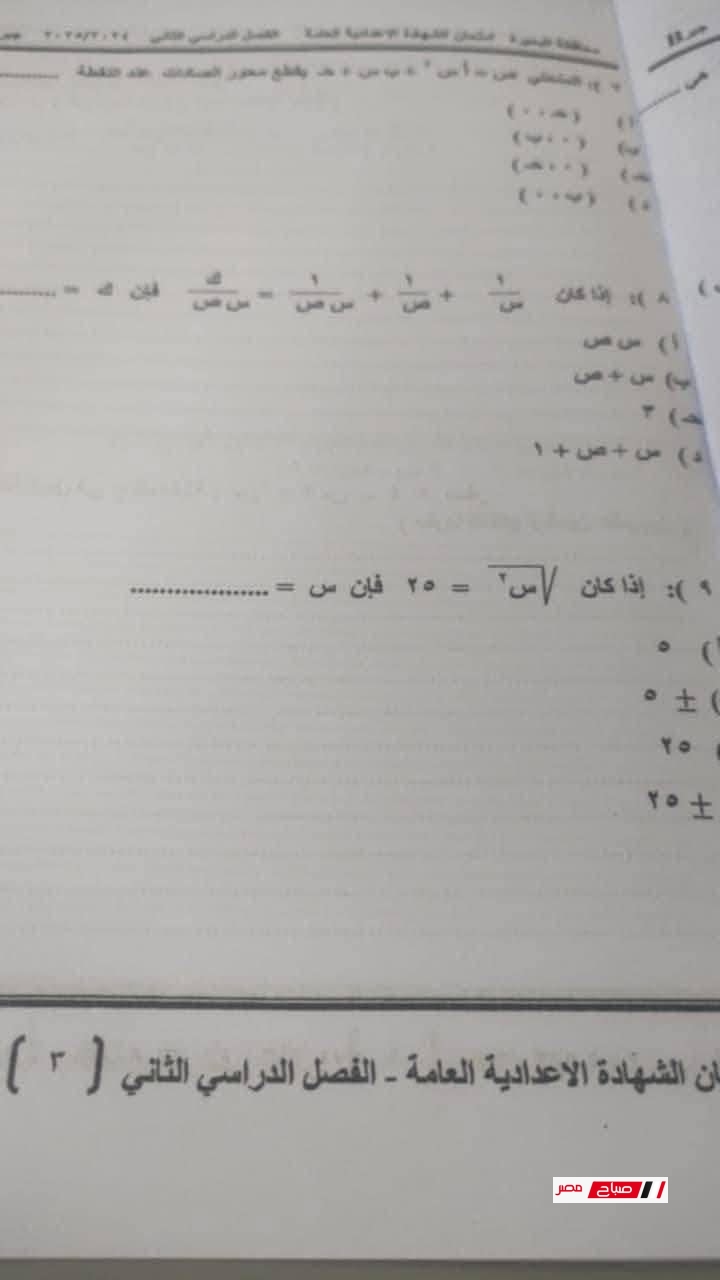 محافظة البحيرة امتحان الشهادة الاعدادية العامة الفصل الدراسي الثاني ٢٠٢٥/٢٠٢٤
٧ ): المنحنى ص = أ س ٢ + ب س + جـ يقطع محور الصادات عند النقطة ..........
أ) (جـ ، ٠)
ب) (٠ ، ب)
جـ) (٠ ، جـ)
د) (ب ، ٠)
٨ ): إذا كان ١/س + ١/ص + ١/س ص = ك/س ص فإن ك = ..........
أ) س ص
ب) س + ص
جـ) ٣
د) س + ص + ١
٩ ): إذا كان √س٢ = ٢٥ فإن س = ...................
أ) ٥
) ± ٥
٢٥
± ٢٥
ان الشهادة الاعدادية العامة - الفصل الدراسي الثاني [ ٣ ]
صباح مصر